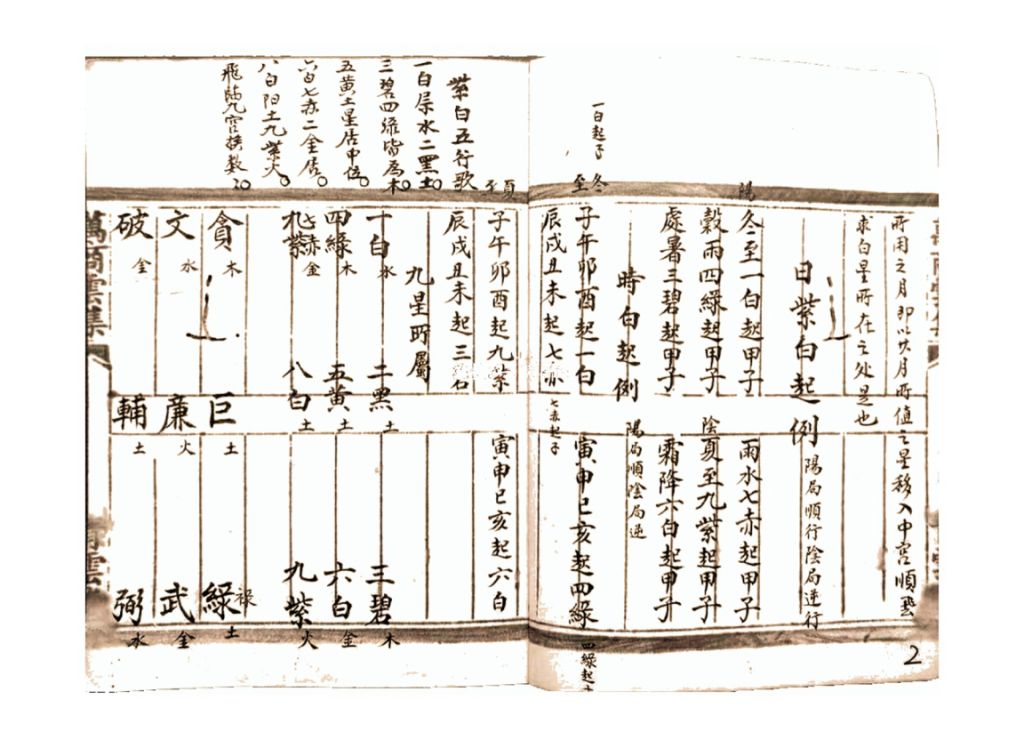 所用之月即以其月所值之星移入中宮順飛
求白星所在之处是也
日紫白起例
陽局順行陰局逆行
陽
冬至一白起甲子
雨水七赤起甲子
穀雨四綠起甲子
陰
夏至九紫起甲子
處暑三碧起甲子
霜降六白起甲子
時白起例
陽局順陰局逆
一白起子
冬至
子午卯酉起一白
寅申巳亥起四綠
四綠起
辰戌丑未起七赤
七赤起子
夏至
子午卯酉起九紫
寅申巳亥起六白
辰戌丑未起三
九星所屬
十白水
二黑土
三碧木
四綠木
五黃土
六白金
七赤金
八白土
九紫火
九紫
貪木
巨土
綠土
祿
文水
廉火
武金
破金
輔土
弼水
紫白五行歌
一白屬水二黑土
三碧四綠皆為木
五黃土星居中位
六白七赤二金居
八白阳土九紫火
飛臨九宮
萬商雲集
2